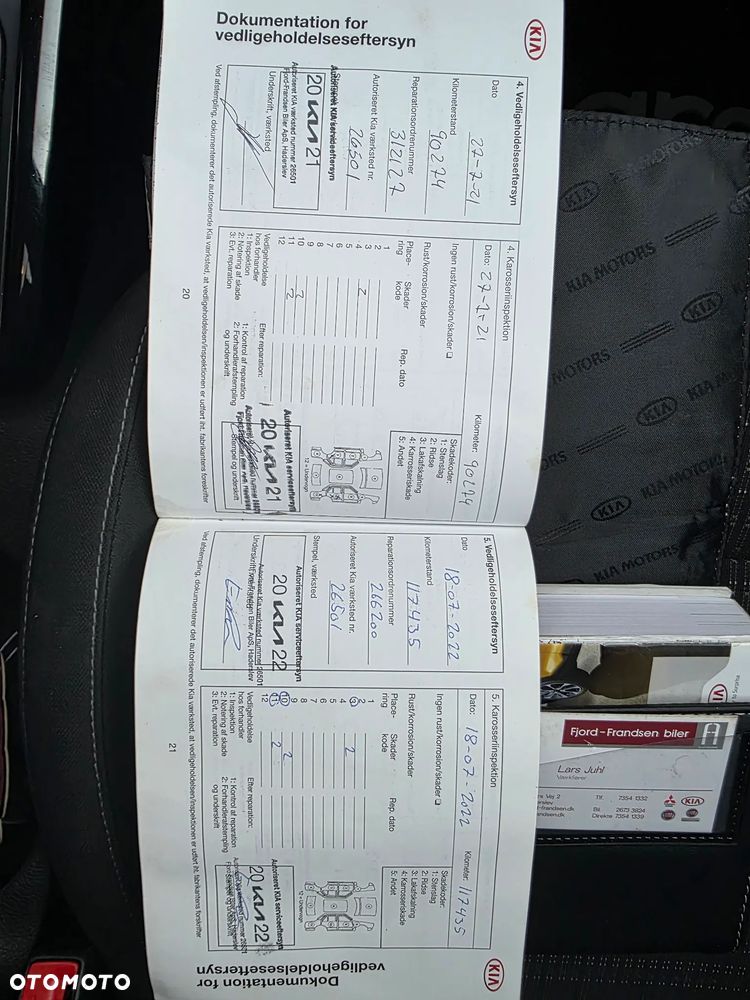 Dokumentation for
vedligeholdelseseftersyn
KIA
4. Vedligeholdelseseftersyn
Dato
27-7-21
Kilometerstand
90274
Reparationsordrenummer
312127
Autoriseret Kia værksted nr.
26501
Stempel, værksted
Autoriseret KIA serviceeftersyn
20 KIA 21
Autoriseret KIA værksted nummer 26501
Fjord-Frandsen Biler ApS, Haderslev
Underskrift, værksted
4. Karosseriinspektion
Dato: 27-7-21
Kilometer: 90274
Ingen rust/korrosion/skader
Rust/korrosion/skader
Place-
ring
Skader
kode
Rep. dato
1
2
3
4 2
5
6
7
8
9
10 3
11 2
12
Skadekoder:
1: Stenslag
2: Ridse
3: Lakafskalning
4: Karrosseriskade
5: Andet
12 = Undervogn
Vedligeholdelse
hos forhandler
1: Inspektion
2: Notering af skade
3: Evt. reparation
Efter reparation:
1: Kontrol af reparation
2: Forhandlerafstempling
og underskrift
Autoriseret KIA serviceeftersyn
20 KIA 21
Stempel og underskrift
Ved afstempling, dokumenterer det autoriserede Kia værksted, at vedligeholdelsen/inspektionen er udført iht. fabrikantens forskrifter
20
5. Vedligeholdelseseftersyn
Dato
18-07-2022
Kilometerstand
117435
Reparationsordrenummer
216200
Autoriseret Kia værksted nr.
26501
Stempel, værksted
Autoriseret KIA serviceeftersyn
20 KIA 22
Autoriseret KIA værksted nummer 26501
Fjord-Frandsen Biler ApS, Haderslev
Underskrift, værksted
5. Karosseriinspektion
Dato: 18-07-2022
Kilometer: 117435
Ingen rust/korrosion/skader
Rust/korrosion/skader
Place-
ring
Skader
kode
Rep. dato
1
2
3 2
4
5
6
7
8
9
10 2
11 2
12
Skadekoder:
1: Stenslag
2: Ridse
3: Lakafskalning
4: Karrosseriskade
5: Andet
12 = Undervogn
Vedligeholdelse
hos forhandler
1: Inspektion
2: Notering af skade
3: Evt. reparation
Efter reparation:
1: Kontrol af reparation
2: Forhandlerafstempling
og underskrift
Autoriseret KIA serviceeftersyn
20 KIA 22
Ved afstempling, dokumenterer det autoriserede Kia værksted, at vedligeholdelsen/inspektionen er udført iht. fabrikantens forskrifter
21
KIA
Dokumentation for
vedligeholdelseseftersyn
KIA MOTORS
KIA MOTORS
KIA MOTORS
KIA MOTORS
Fjord-Frandsen biler
Lars Juhl
Værkfører
Vej 2
Tlf. 7354 1332
Bil. 2673 3824
Direkte 7354 1339
KIA
OTOMOTO